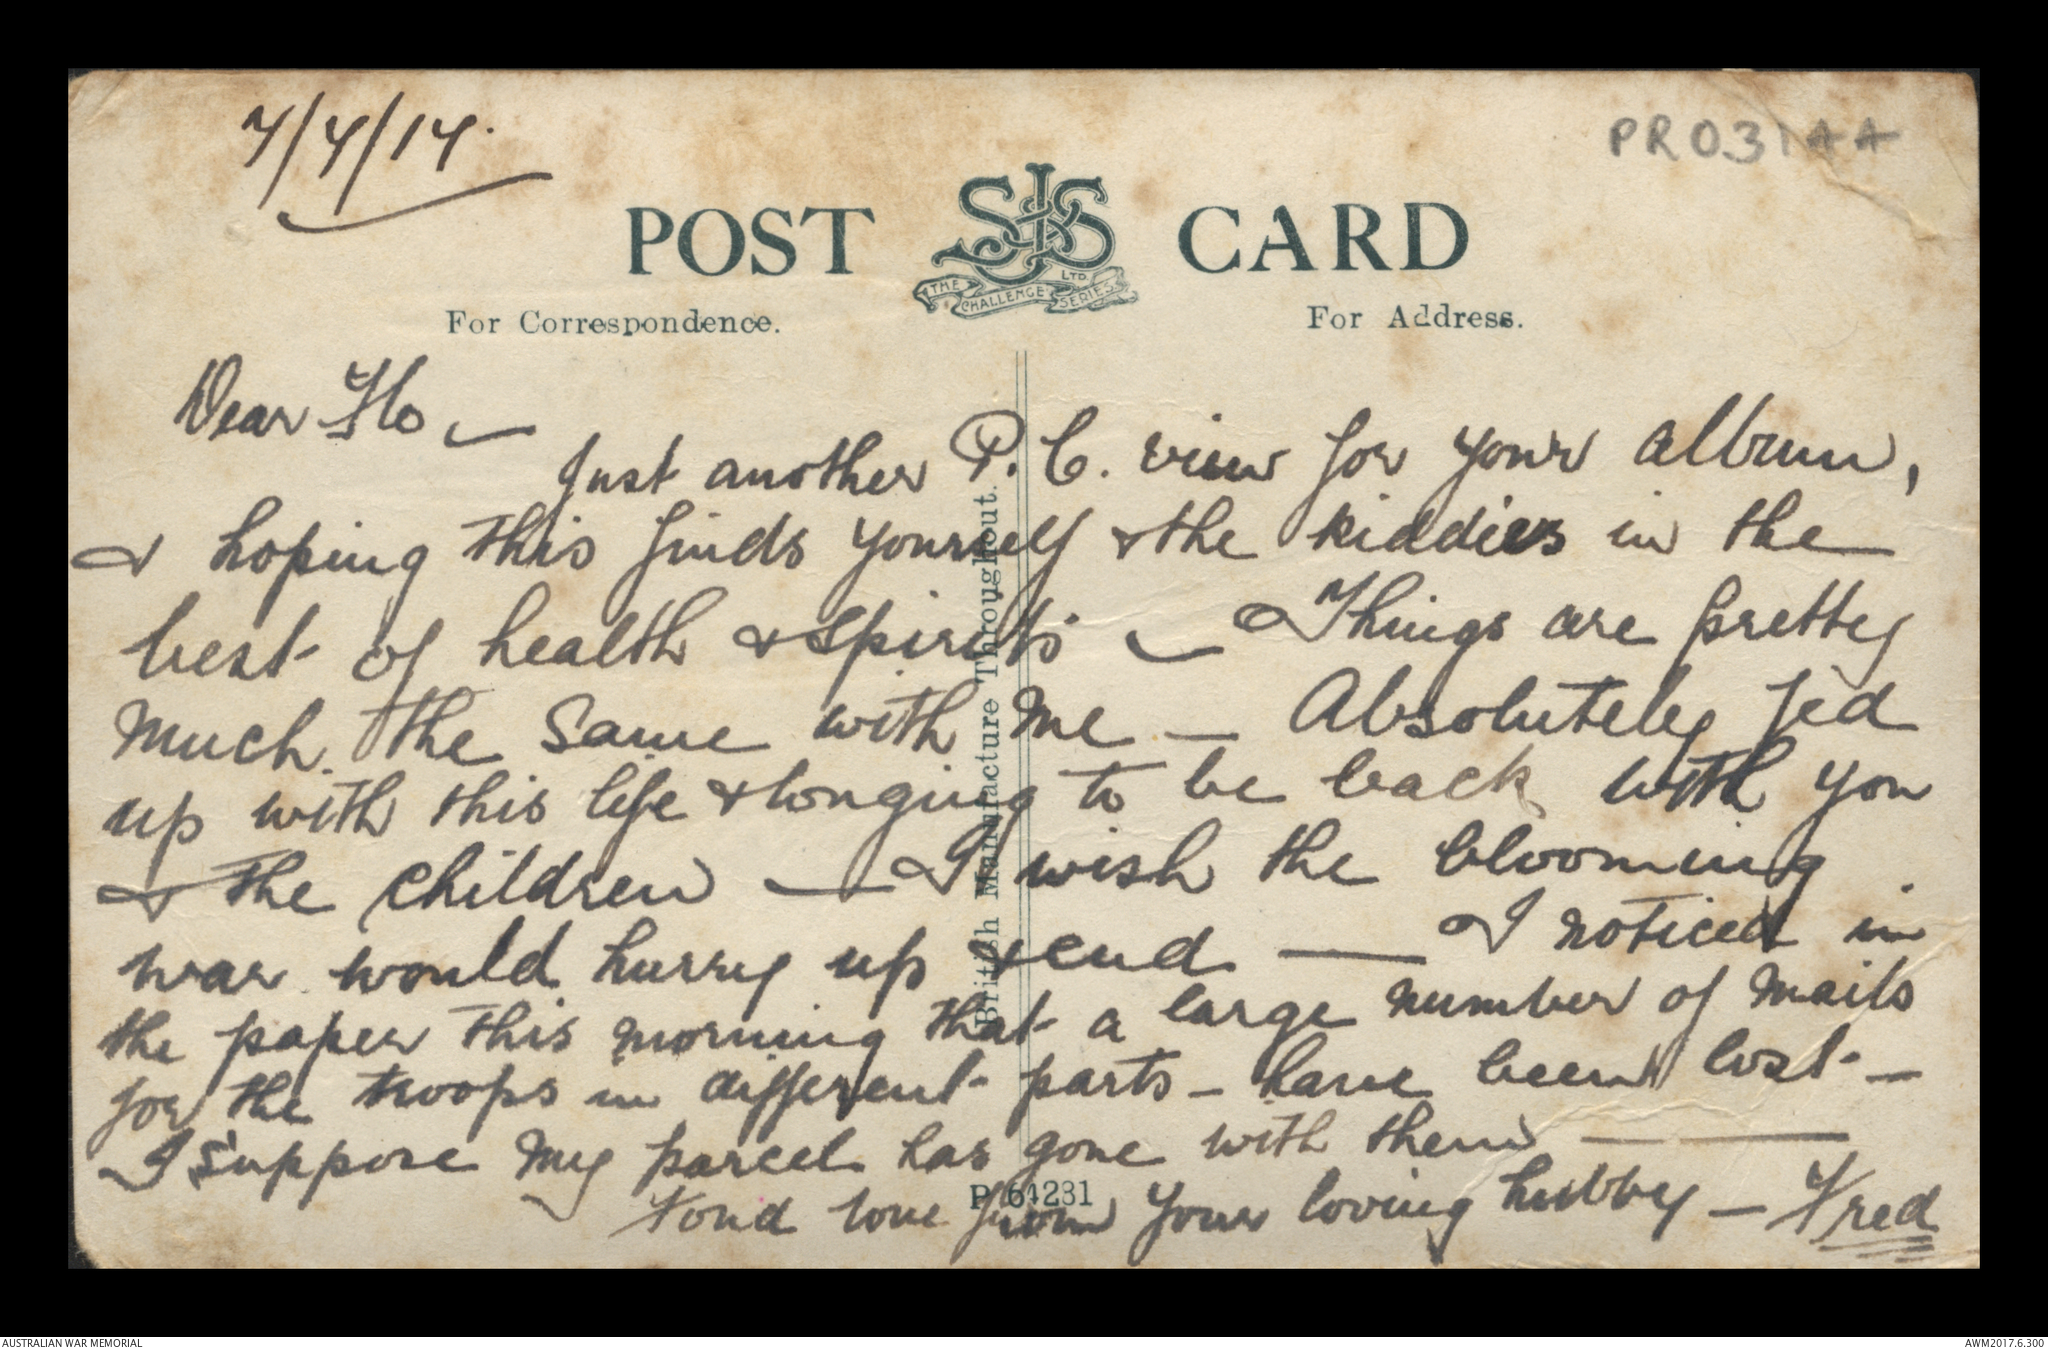 7/4/17.
PR03144
POST CARD
SJS LTD.
THE CHALLENGE SERIES
For Correspondence.
For Address.
British Manufacture Throughout.
Dear Flo —
Just another P.C. view for your album,
& hoping this finds yourself & the kiddies in the
best of health & spirits — Things are pretty
much the same with me — Absolutely fed
up with this life & longing to be back with you
& the children — I wish the blooming
war would hurry up & end — I noticed in
the paper this morning that a large number of mails
for the troops in different parts – have been lost –
I suppose my parcel has gone with them —
Fond love from your loving hubby – Fred
P 64231
AUSTRALIAN WAR MEMORIAL
AWM2017.6.300